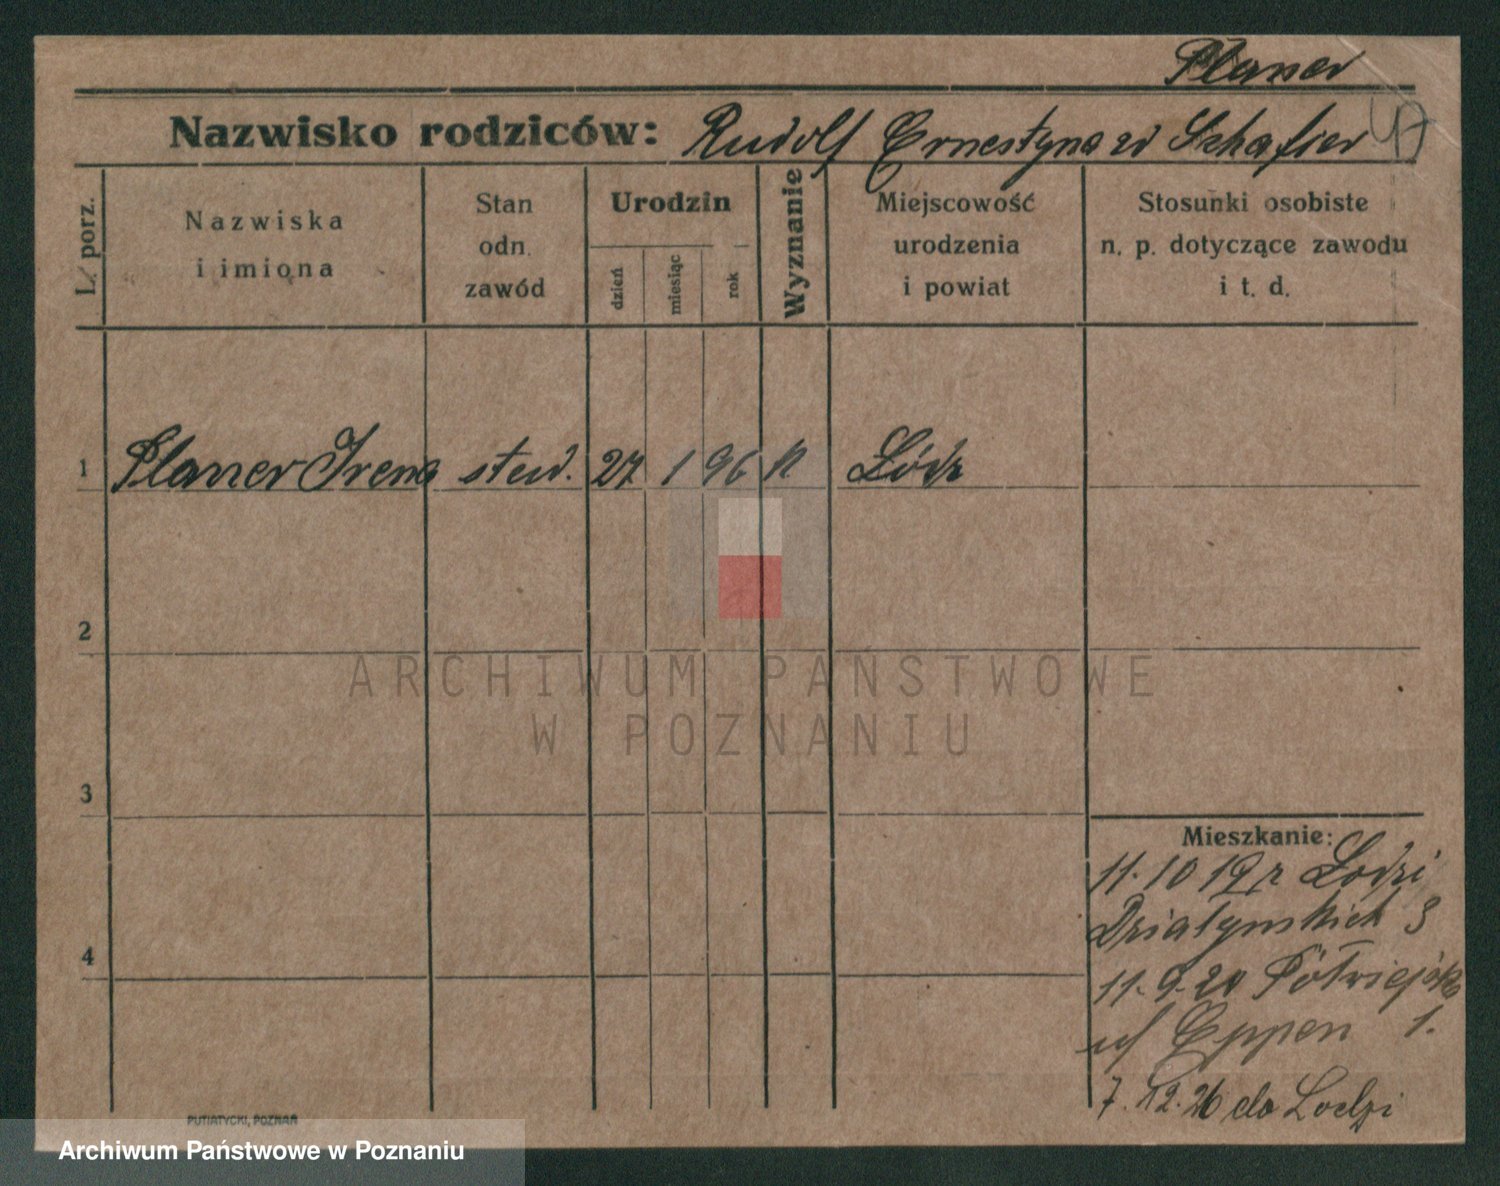 Planer
Nazwisko rodziców: Rudolf Ernestyna zd Szhafier
L. porz.
Nazwiska
i imiona
Stan
odn.
zawód
Urodzin
dzień
miesiąc
rok
Wyznanie
Miejscowość
urodzenia
i powiat
Stosunki osobiste
n. p. dotyczące zawodu
i t. d.
1 Planer Irena stud. 27 1 96 k Łódz
2
ARCHIWUM PAŃSTWOWE
W POZNANIU
3
Mieszkanie:
11.10 19 r Łodzi
Działynskich 3
4
11.9.20 Półwiejska
uf Eppen 1.
7.12.26 do Lodzi
PUTIATYCKI, POZNAŃ
Archiwum Państwowe w Poznaniu